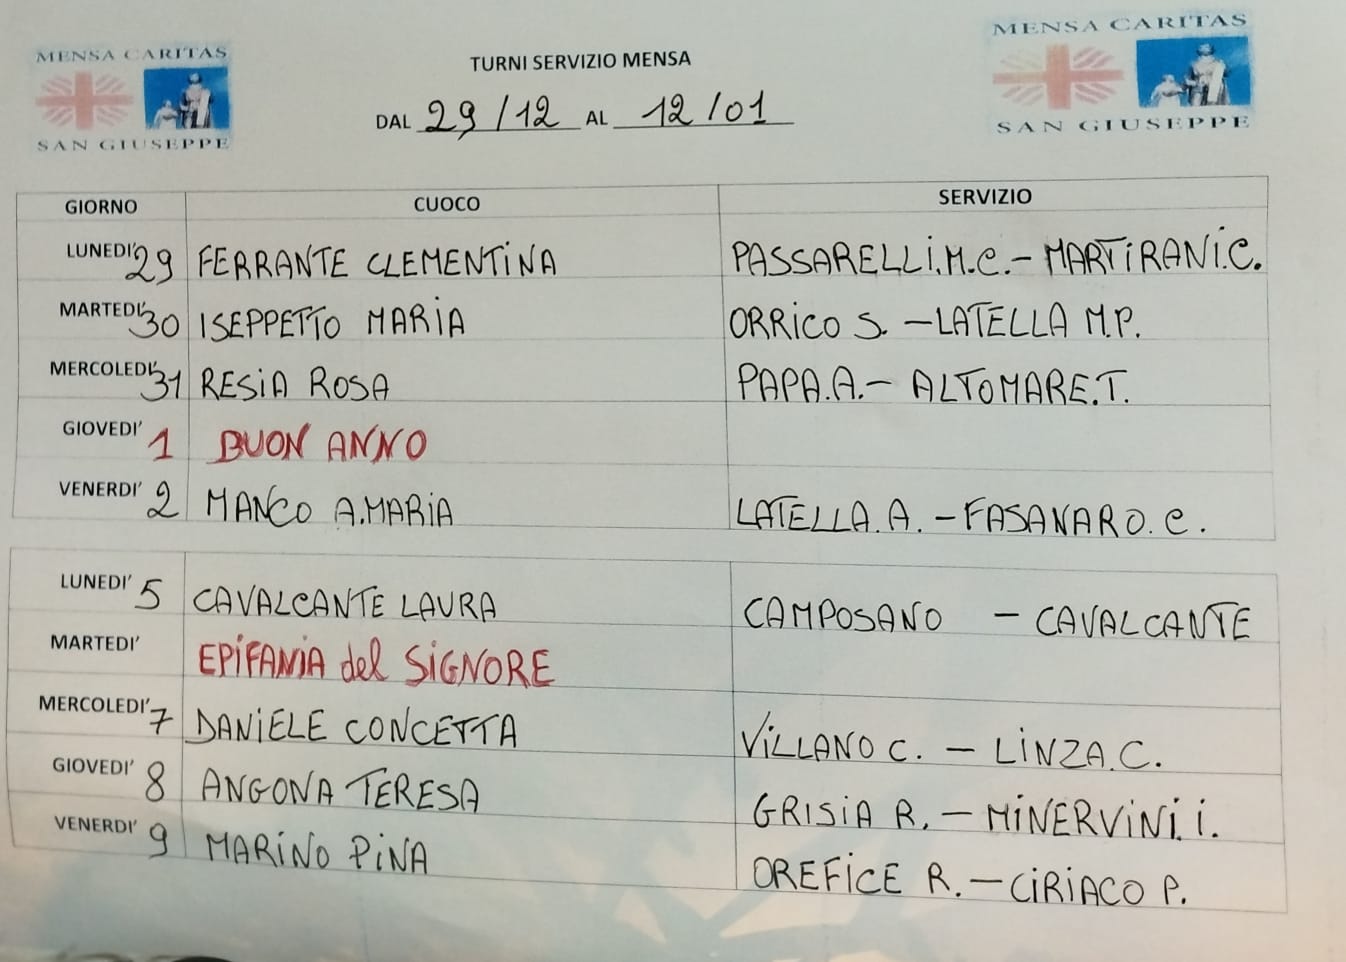 MENSA CARITAS
SAN GIUSEPPE
TURNI SERVIZIO MENSA
DAL 29/12 AL 12/01
MENSA CARITAS
SAN GIUSEPPE
GIORNO CUOCO SERVIZIO
LUNEDI' 29 FERRANTE CLEMENTINA PASSARELLI.M.C.- MARTIRANI.C.
MARTEDI' 30 ISEPPETTO MARIA ORRICO S. - LATELLA M.P.
MERCOLEDI' 31 RESIA ROSA PAPA.A.- ALTOMARE.T.
GIOVEDI' 1 BUON ANNO
VENERDI' 2 MANCO A.MARIA LATELLA.A. - FASANARO.C.
LUNEDI' 5 CAVALCANTE LAURA CAMPOSANO - CAVALCANTE
MARTEDI' EPIFANIA del SIGNORE
MERCOLEDI' 7 DANIELE CONCETTA VILLANO C. - LINZA.C.
GIOVEDI' 8 ANGONA TERESA GRISIA R. - MINERVINI.I.
VENERDI' 9 MARINO PINA OREFICE R. - CIRIACO P.